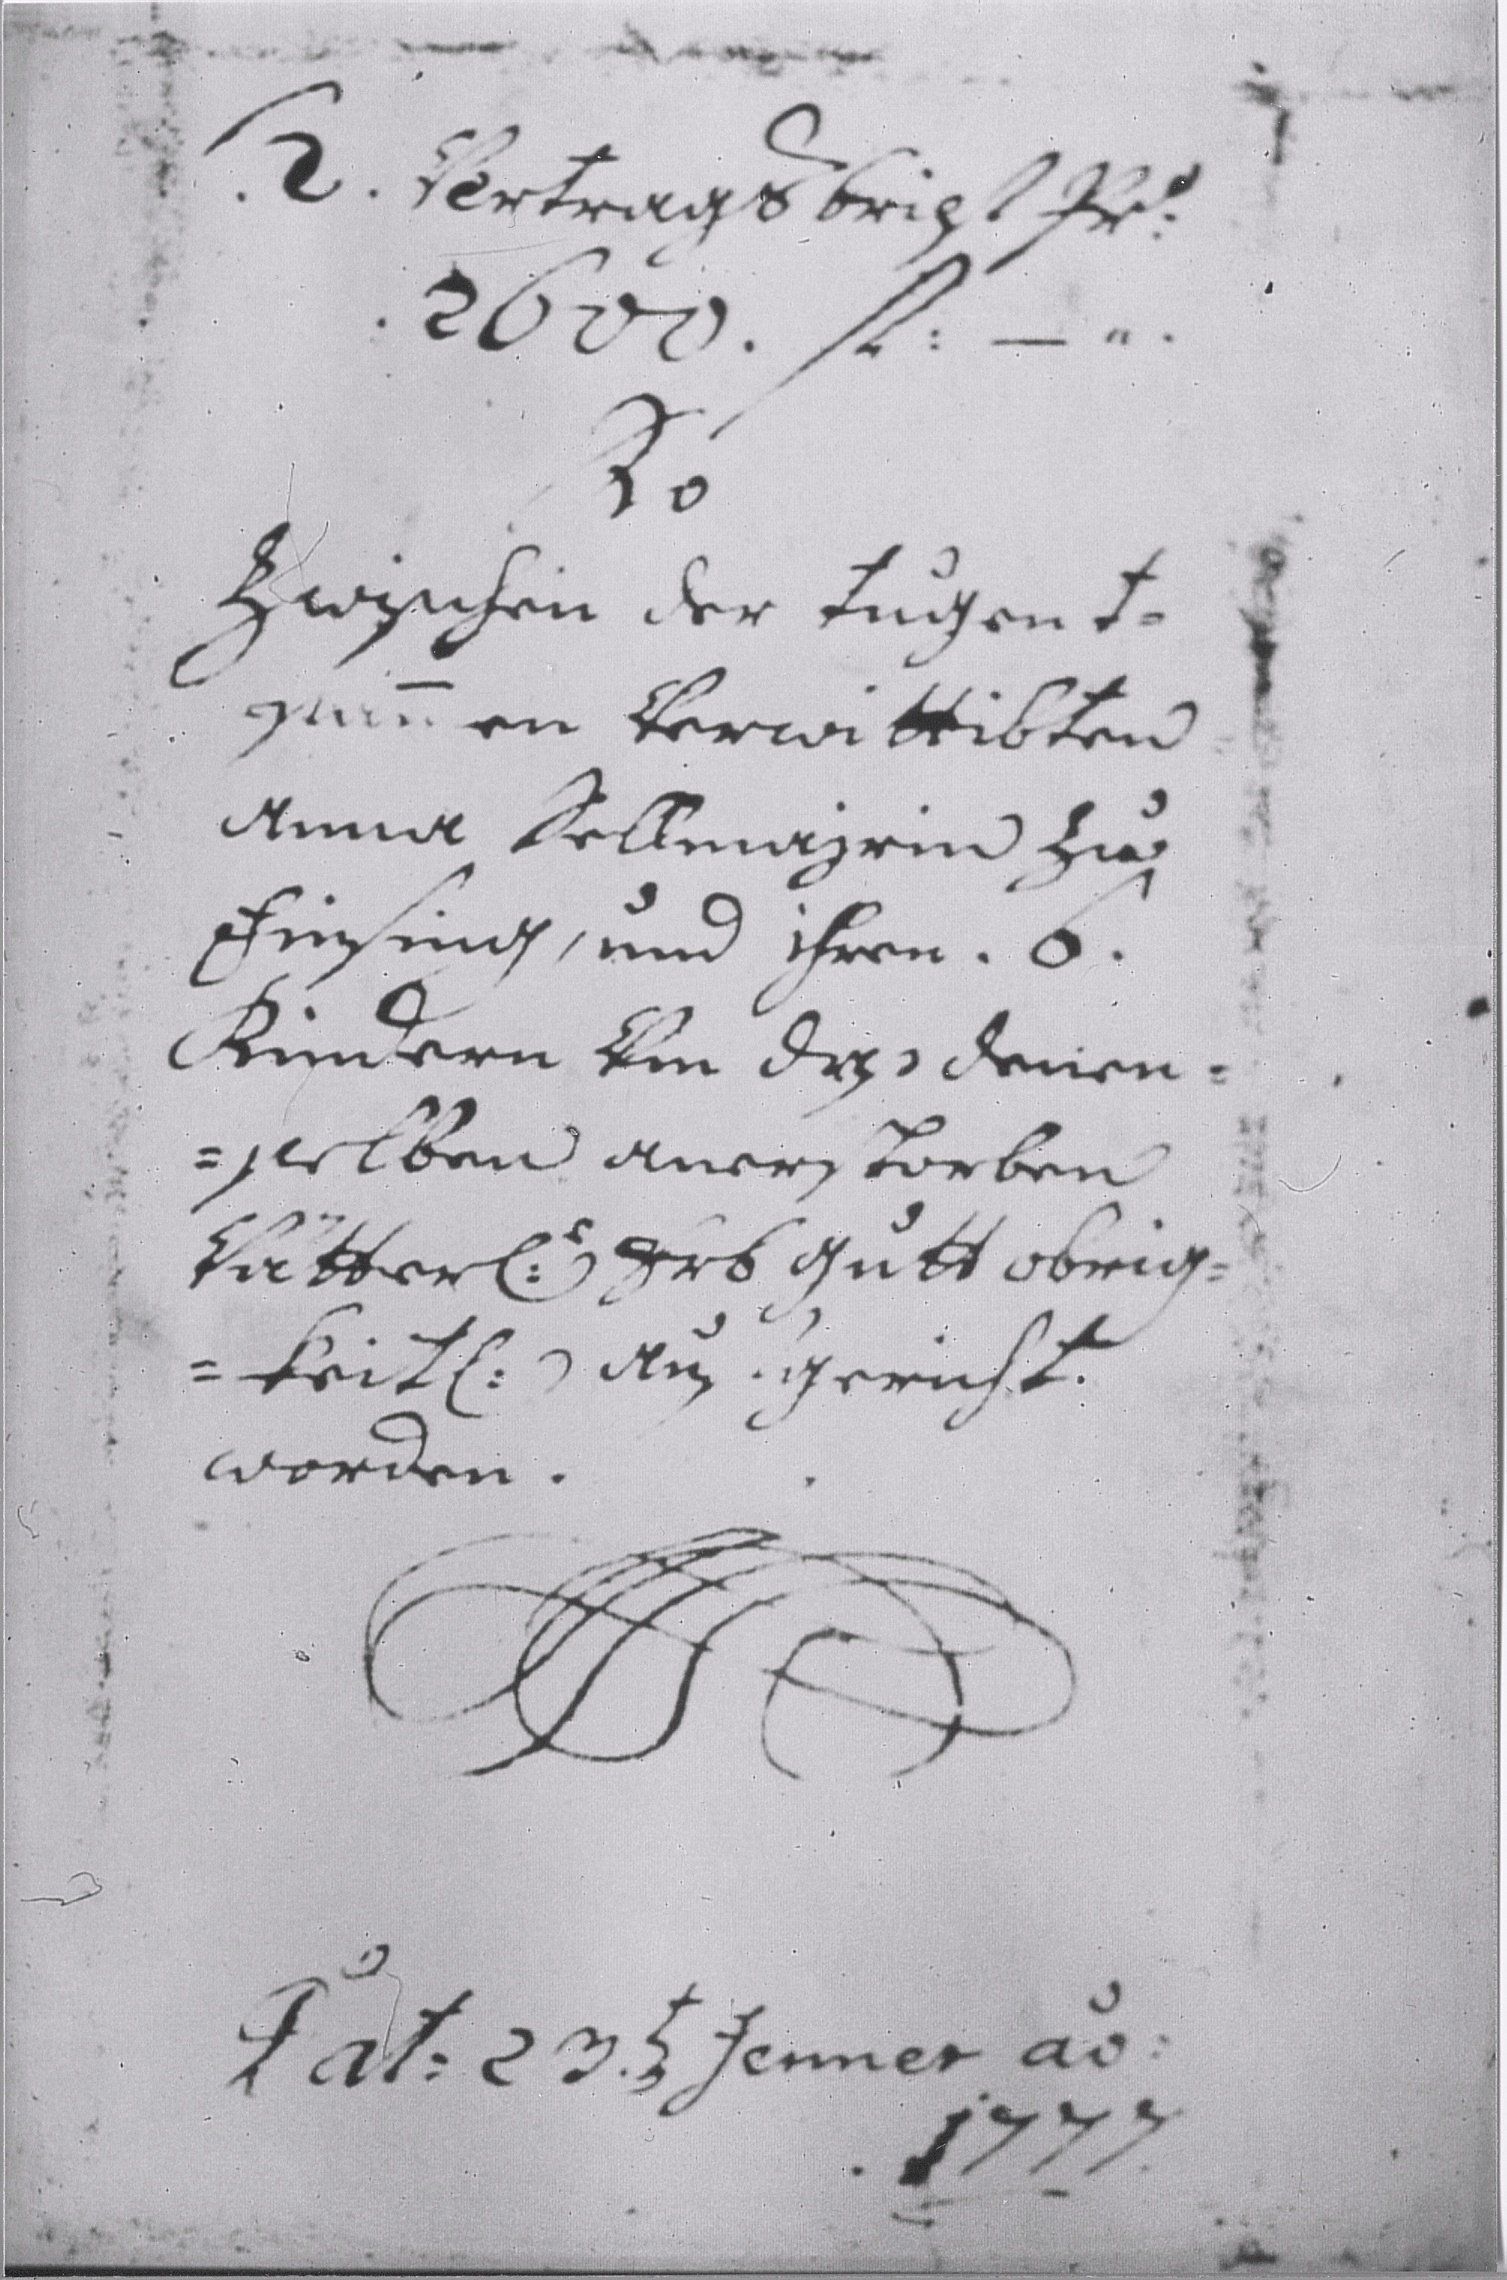 2. Vertragsbrief Pr:
2600. fl: — "
So
Zwischen der tugent=
samen Verwittibten
Anna Sellmayrin zu
Finsing, und ihren. 6.
Kindern Um das denen=
=selben anerstorben
Vätterl: Erbgutt obrig=
=keitl: aus gericht.
worden.
Dat: 23.t Jenner ao:
1777